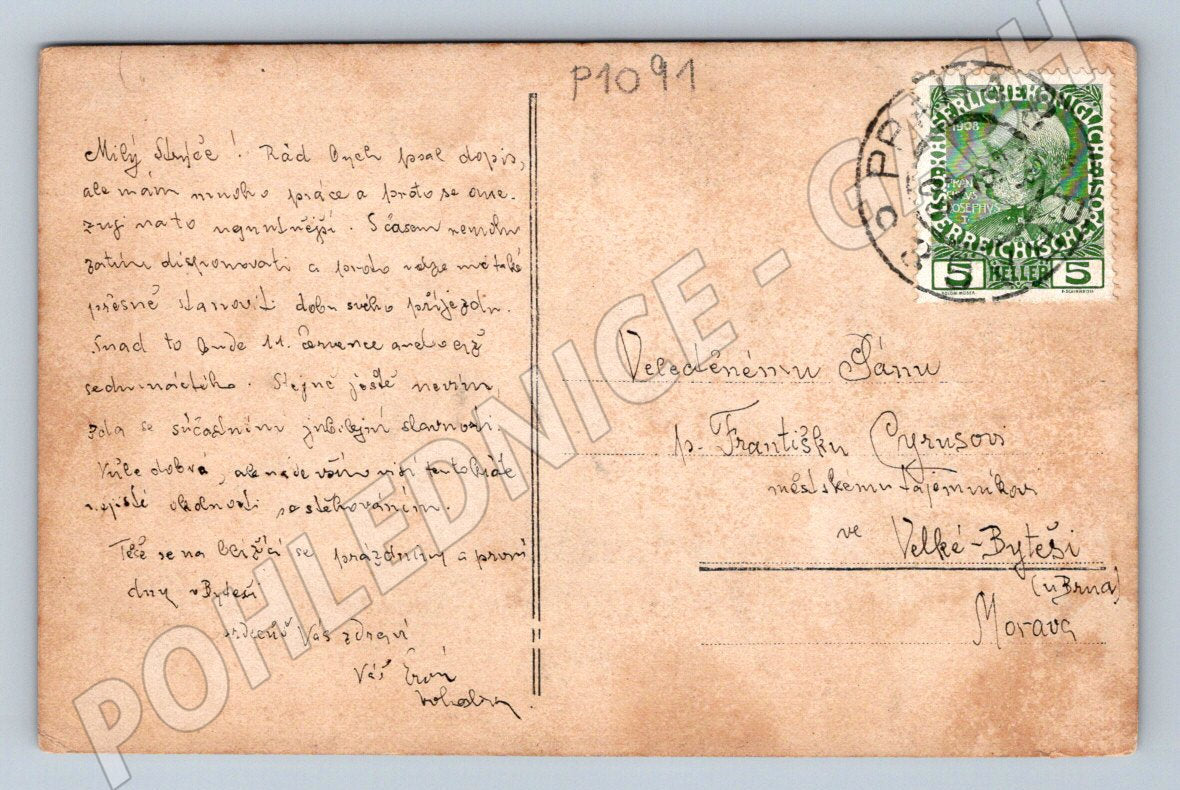 P1091
Milý Strýče! Rád bych psal dopis,
ale mám mnoho práce a proto se ome-
zuji na to nejnutnější. S časem nemohu
zatím disponovati a proto nelze mě také
přesně stanoviti dobu svého příjezdu.
Snad to bude 11. července anebo až
sedmnáctého. Stejně ještě nevím
zda se súčastním jubilejní slavnosti.
Vůle dobrá, ale nade vším visí tentokráte
nejisté se stěhováním.
Těší se na blížící se prázdniny a první
dny v Byteši
srdečně Vás zdraví
Váš
PRAHA
ÖSTERREICHISCHE POST
KAISERLICHE KÖNIGLICHE
1908
FRANCISCVS IOSEPHVS I.
5 HELLER 5
Velectěnému Pánu
p. Františku Cyrusovi
městskému tajemníkovi
ve Velké-Byteši
(u Brna)
Morava
POHLEDNICE - GALCH